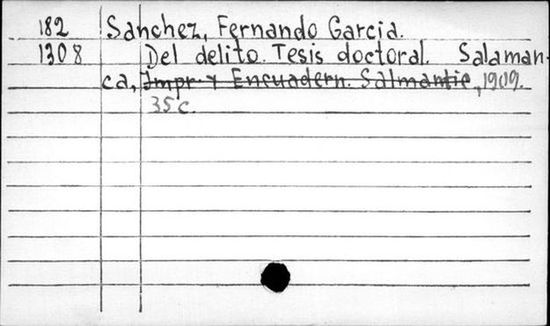 182 Sanchez, Fernando Garcia.
1308 Del delito. Tesis doctoral. Salaman-
ca, Impr. y Encuadern. Salmantic, 1909.
35 c.